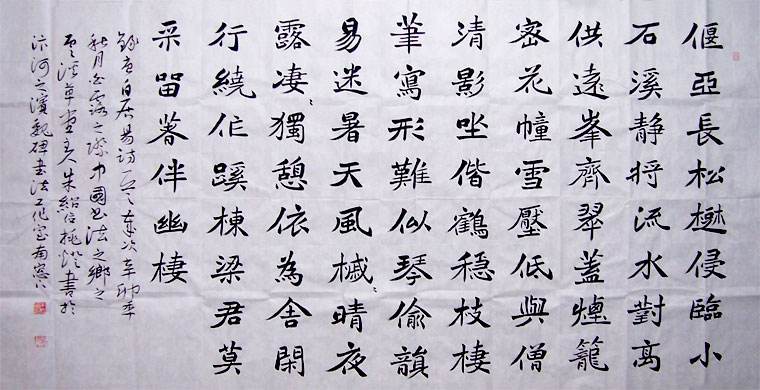 偃亞長松樾侵臨小
石溪静將流水對高
供遠峯齊翠蓋煙籠
密花幢雪壓低與僧
清影坐偕鶴穩枝棲
筆寫形難似琴偷韻
易迷暑天風槭〻晴夜
露凄〻獨憩依為舍閑
行繞作蹊棟梁君莫
采留著伴幽棲
唐白居易詩一首歲次辛卯年
秋月白露之際中國書法之鄉之
草堂主人朱紹挑燈書於
汴河之濱魏碑書法工作室南窗下